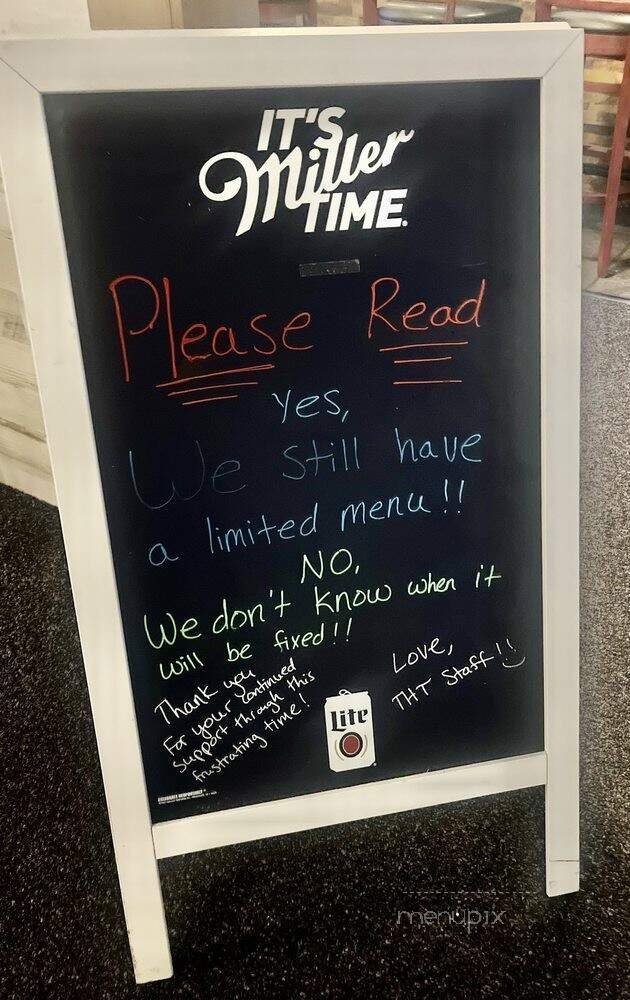 IT'S
Miller
TIME.
Please Read
Yes,
We still have
a limited menu!!
NO,
We don't know when it
will be fixed!!
Thank you
For your continued
support through this
frustrating time!
Love,
THT Staff!!
Lite
menupix